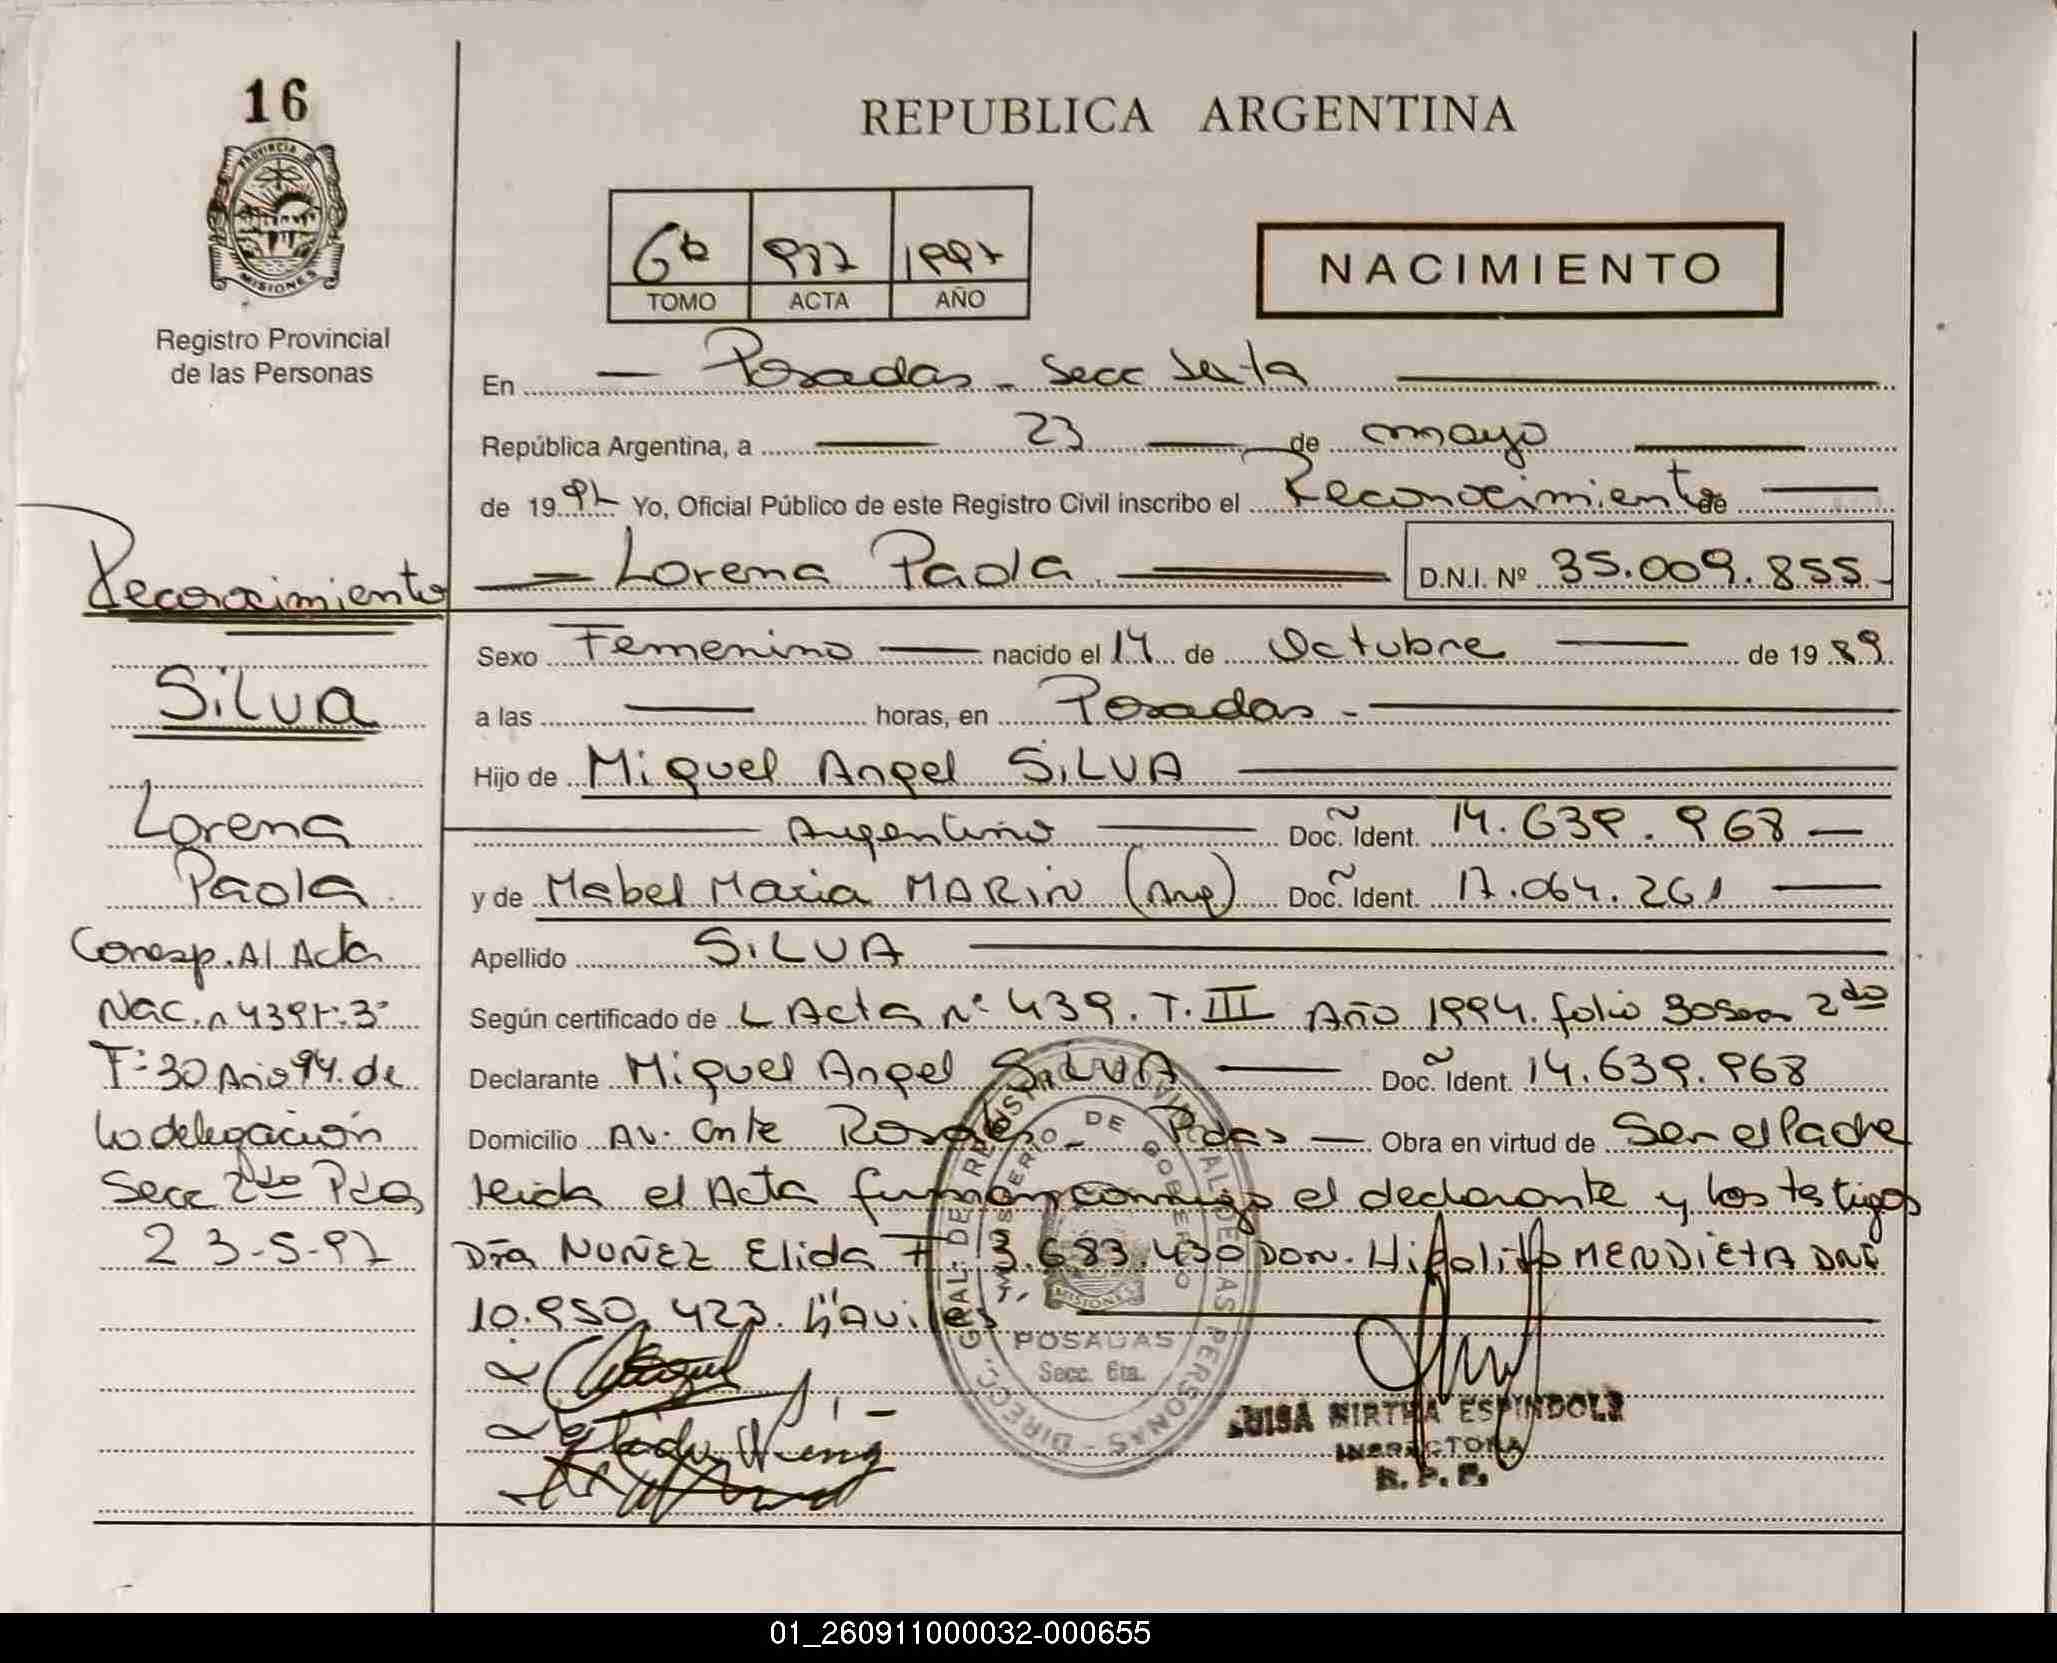 16
PROVINCIA DE
MISIONES
Registro Provincial
de las Personas
REPUBLICA ARGENTINA
6to 977 1997
TOMO ACTA AÑO
NACIMIENTO
En — Posadas - Secc Sexta
República Argentina, a 23 de mayo
de 1997 Yo, Oficial Público de este Registro Civil inscribo el Reconocimiento de
Lorena Paola D.N.I. Nº 35.009.855
Sexo Femenino nacido el 14 de Octubre de 1989
a las — horas, en Posadas -
Hijo de Miguel Angel SILVA
Argentino Doc. Ident. 14.639.968
y de Mabel Maria MARIN (Arg) Doc. Ident. 17.064.261
Apellido SILVA
Según certificado de L Acta nº 439. T. III Año 1994. folio 30 Secc 2da
Declarante Miguel Angel SILVA Doc. Ident. 14.639.968
Domicilio Av. Cnte Rosales - Pdas Obra en virtud de Ser el Padre
leida el Acta firman conmigo el declarante y los testigos
Dña NUÑEZ Elida F. 3.683.430 DON. Hipolito MENDIETA DNI
10.950.423.
Reconocimiento
SILVA
Lorena
Paola
Corresp. Al Acta
Nac. n 439 t: 3º
Fº 30 Año 94. de
la delegación
Secc 2da Pdas
23-5-97
DIRECC. GRAL. DE REGISTRO CIVIL DE LAS PERSONAS
MINISTERIO DE GOBIERNO
MISIONES
POSADAS
Secc. 6ta.
LUISA MIRTHA ESPINDOLA
INSPECTORA
R. P. P.
01_260911000032-000655